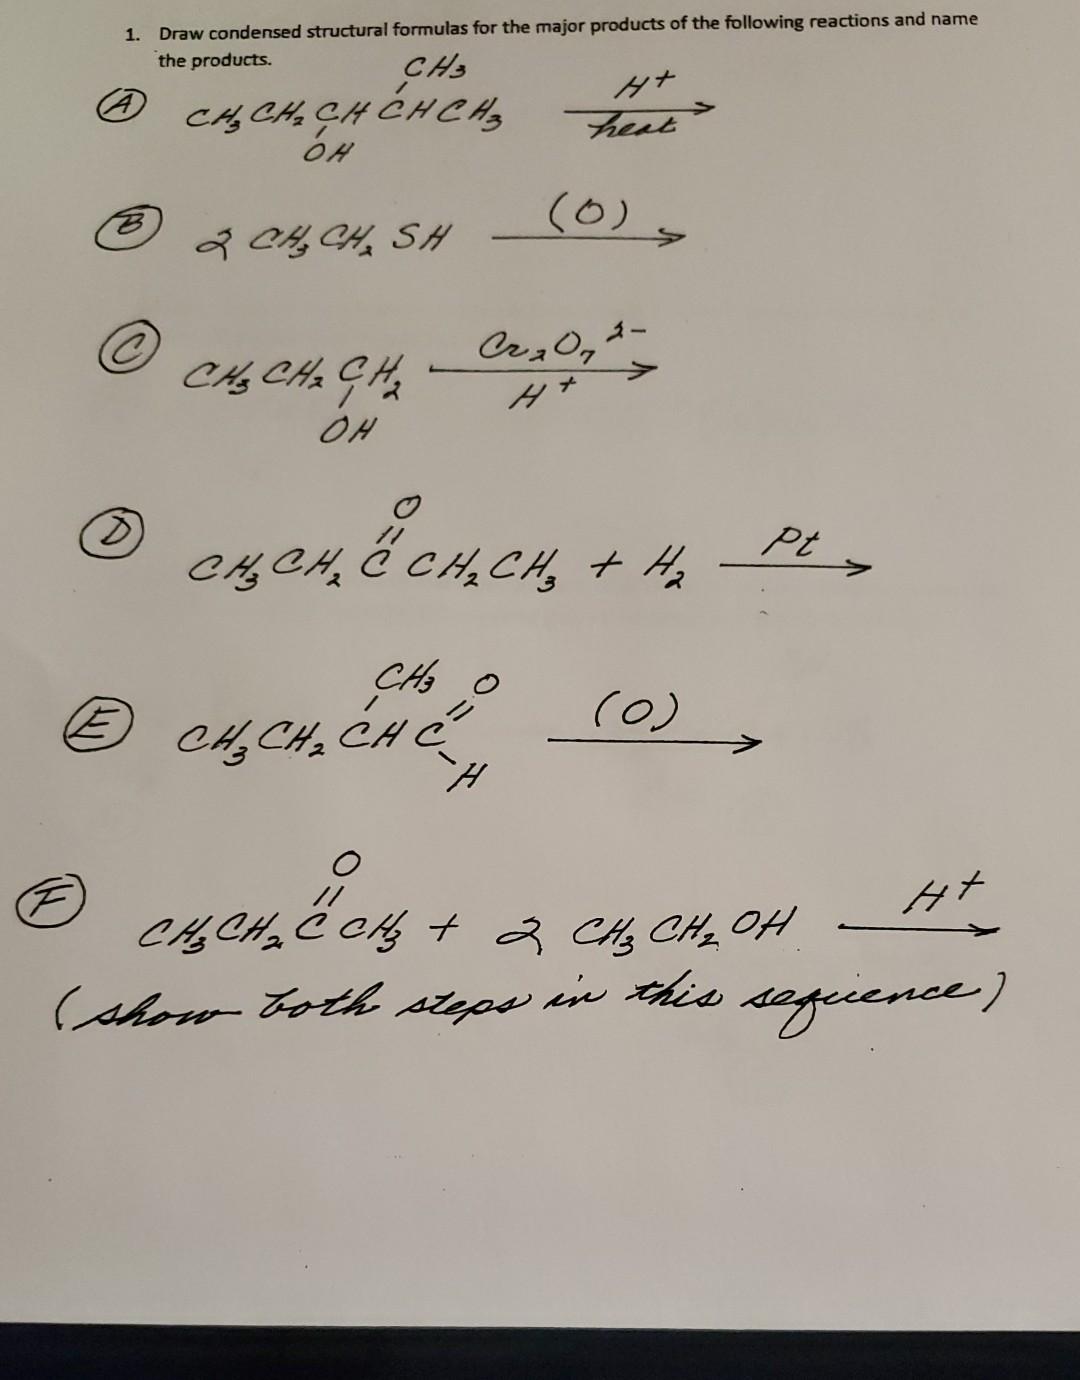 1. Draw condensed structural formulas for the major products of the following reactions and name
the products.
CH₃
H+
A CH₃ CH₂ CH CH CH₃
heat
OH
B 2 CH₃ CH₂ SH (O)
C CH₃ CH₂ CH₂ Cr₂O₇²⁻
H+
OH
O
D CH₃ CH₂ C CH₂ CH₃ + H₂ Pt
CH₃ O
E CH₃ CH₂ CH C (O)
H
O
F CH₃ CH₂ C CH₃ + 2 CH₃ CH₂ OH H+
(show both steps in this sequience)